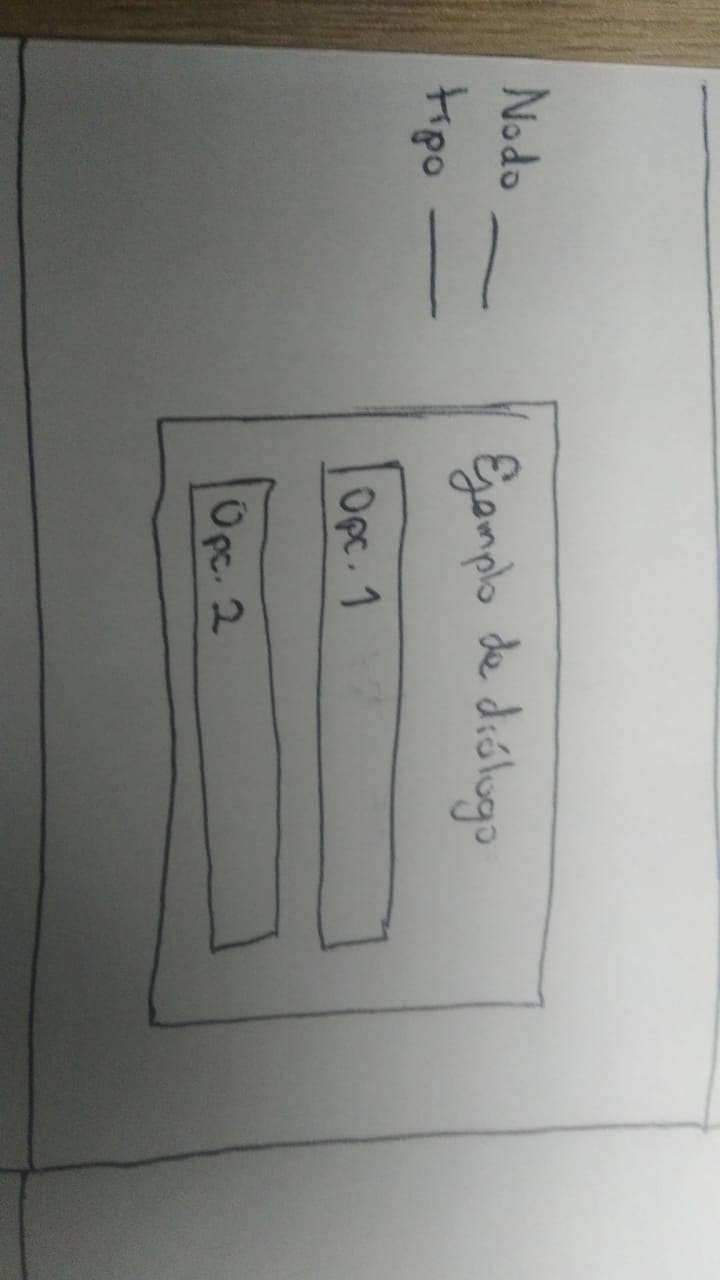 Nodo
tipo
Ejemplo de diálogo
Opc. 1
Opc. 2